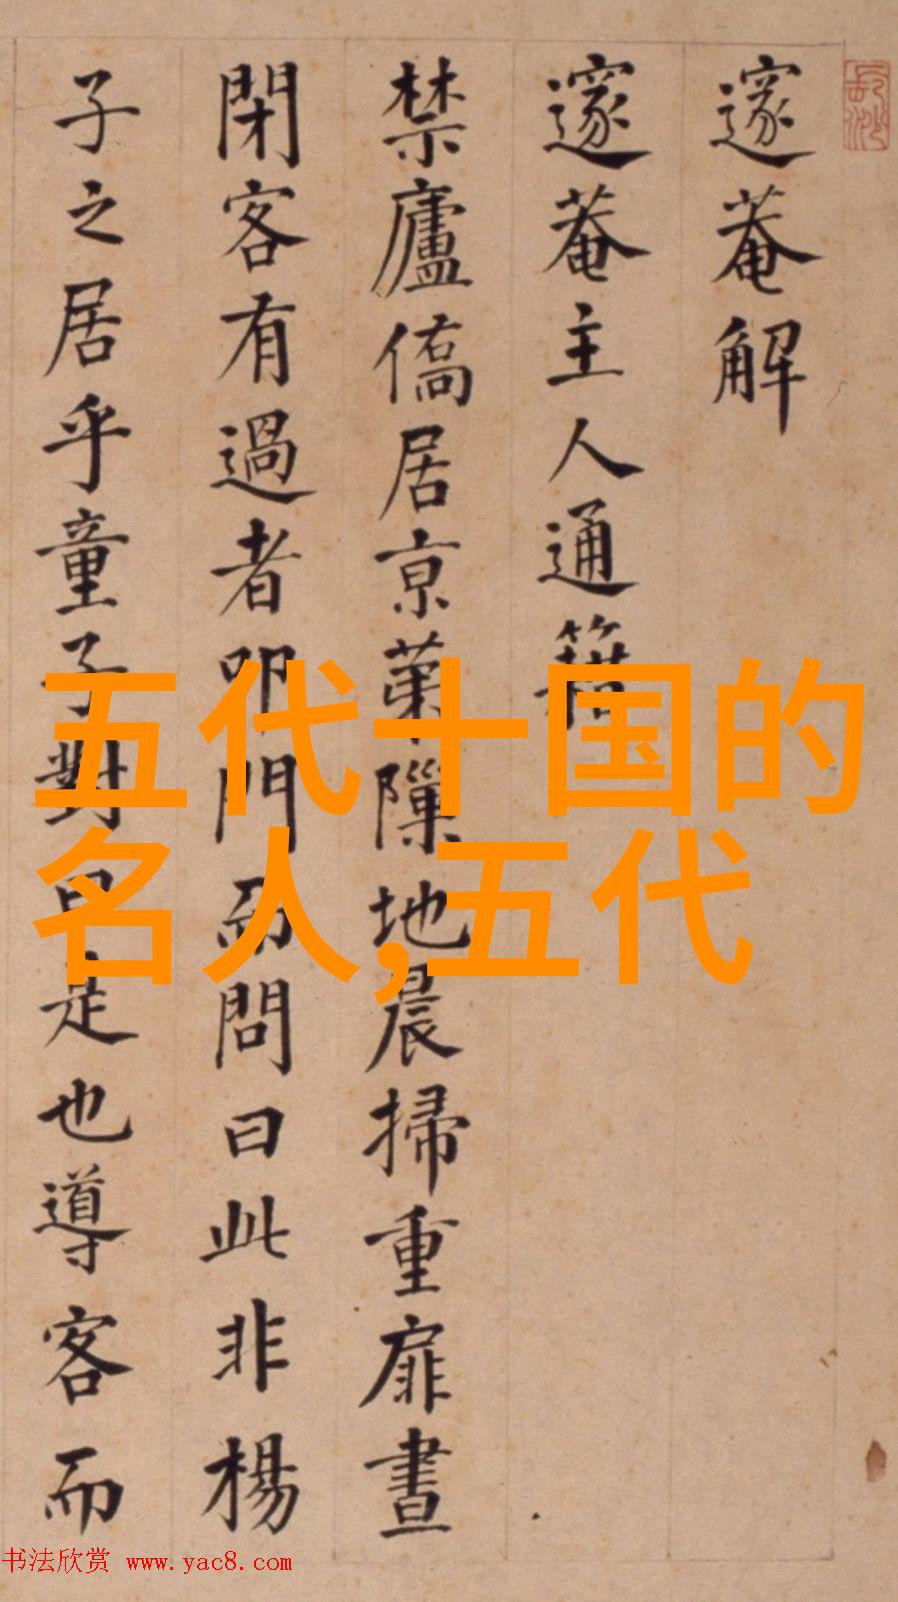 邃菴解
邃菴主人通籍
禁廬僑居京苐隟地晨掃重扉晝
閉客有過者叩門而問曰此非楊
子之居乎童子對曰是也導客而
五代十国的
名人,五代
书法欣赏 www.yac8.com